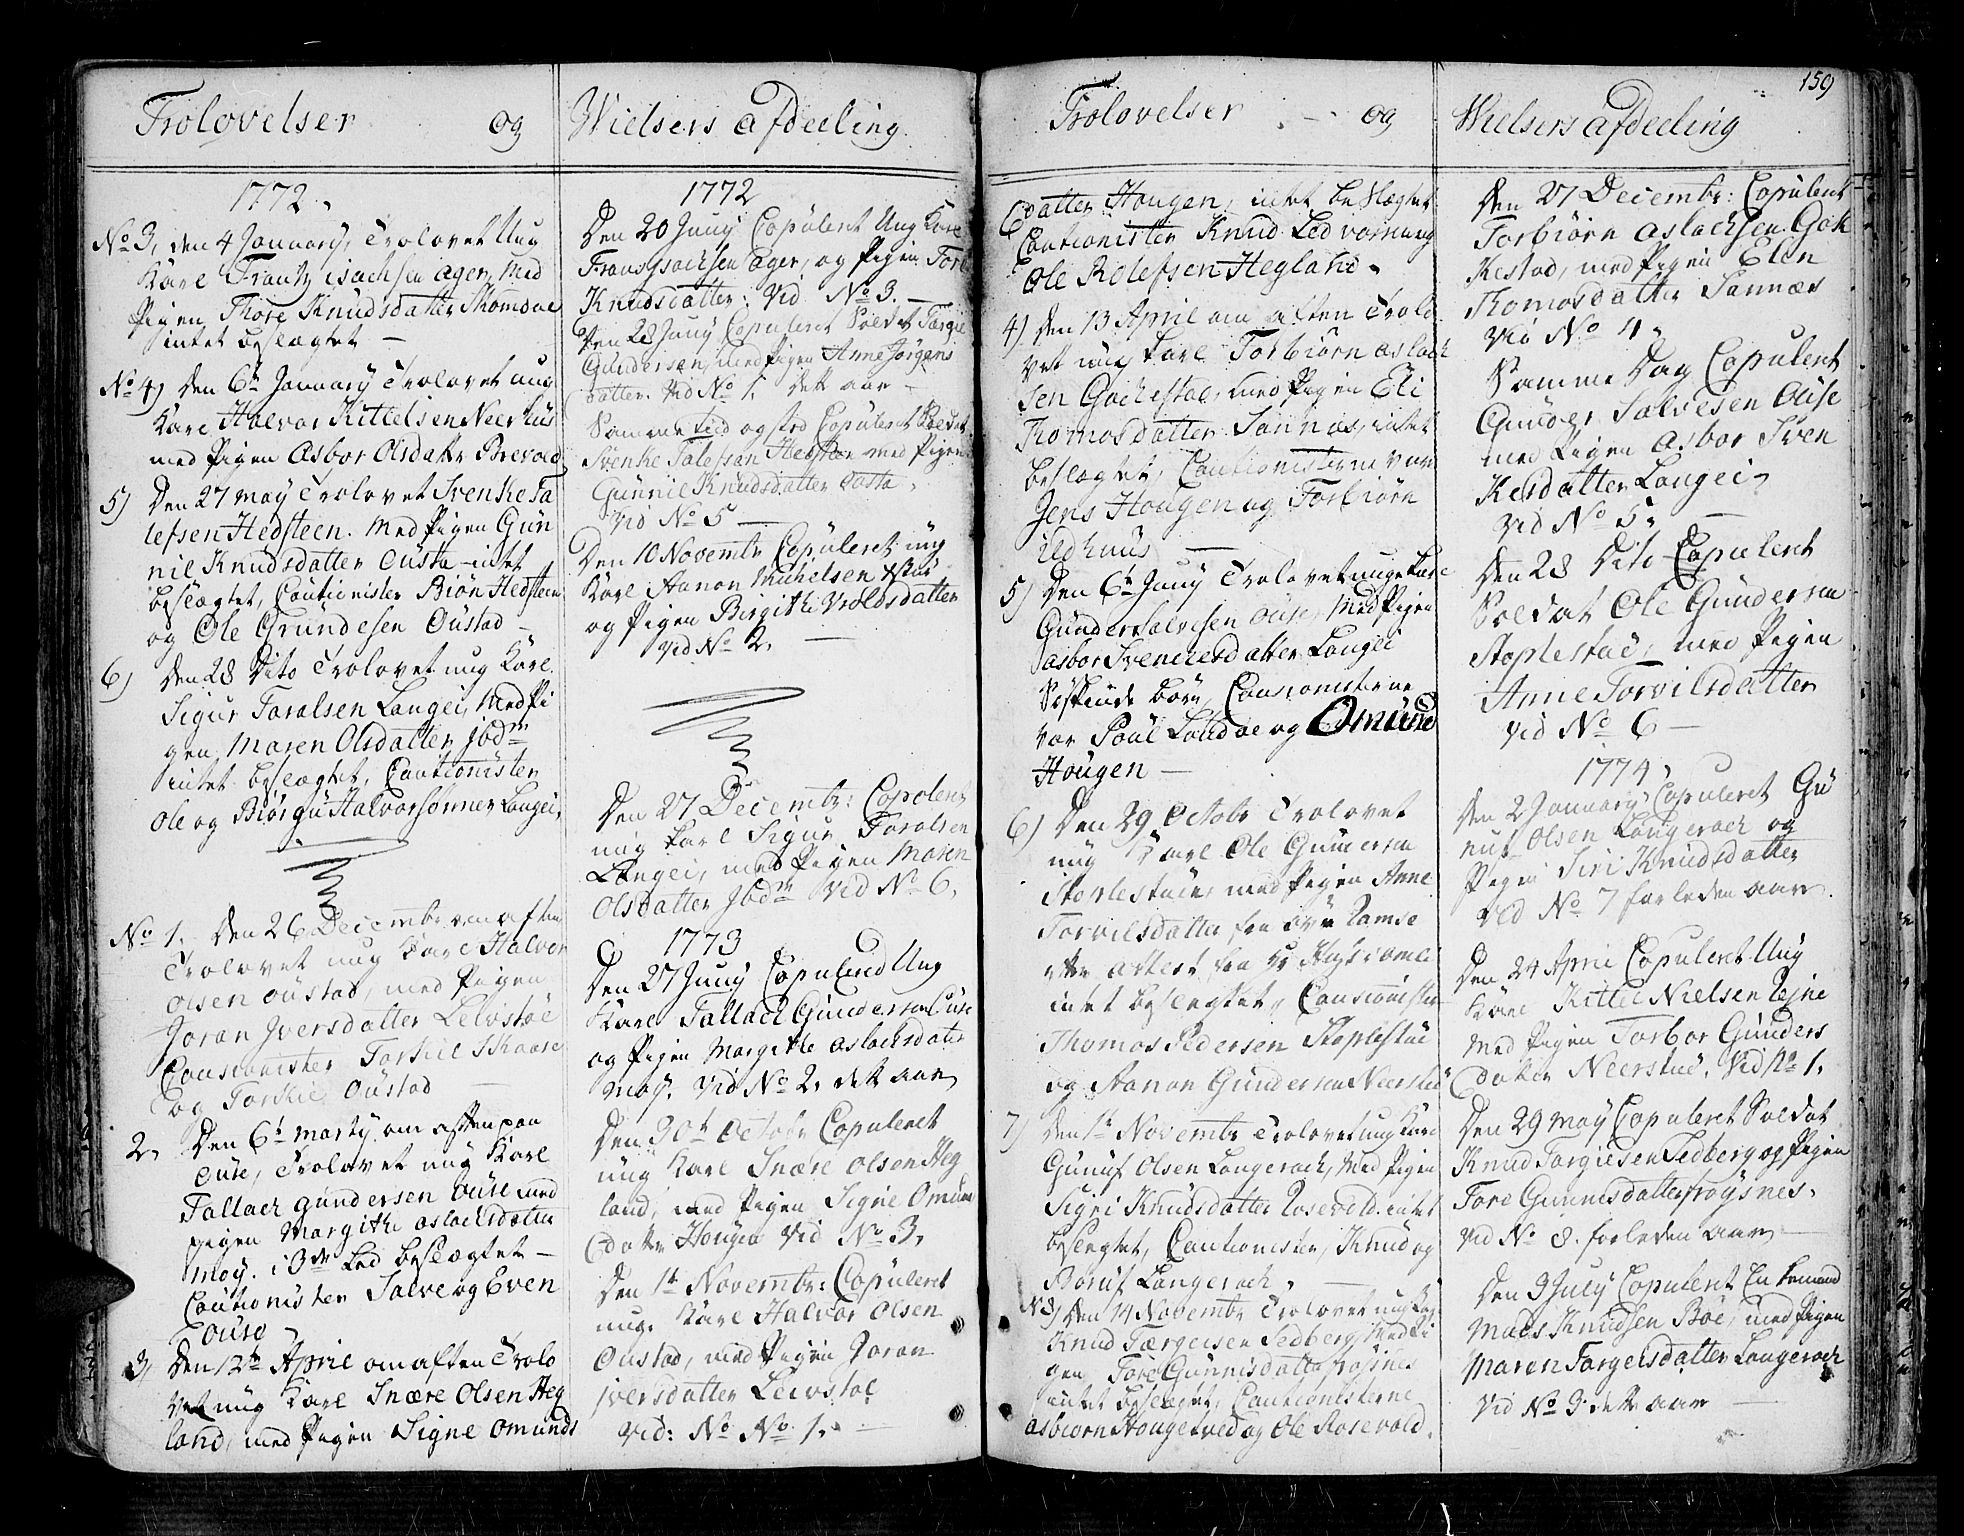 Trolovelser og
1772.
No 3, den 4 January, Trolovet Ung
Karl Frantz isachsen ager, Med
Pigen Thore Knudsdatter Thomdal
intet beslægtet —
No 4) Den 6te January Trolovet ung
Karl Halvor Kittelsen Neerhus
med Pigen Asbor Olsdattr Brevad
5) Den 27 may Trolovet Svenke Ta
lefsen Hedsteen. Med Pigen Gün
nil Knudsdatter Ousta intet
beslægtet, Cautionister Biøn Hedsteen
og Ole Gründesen Oustad —
6) Den 28 Dito Trolovet ung Karl
Sigur Taralsen Langei, Med Pi
gen Maren Olsdatter
intet beslægtet, Cautionister
Ole og Biørgu Halvorsønner Langei,
No 1. Den 26 Decembr om aften
Trolovet ung Karl Halvor
Olsen Oustad, med Pigen
Joran Iversdatter Leivstoe
Causionister Torkil Skaare
og Torkil Oustad —
2, Den 6t marty om aften paa
Ouse, Trolovet ung Karl
Tallach gundersen Ouse med
pigen Margithe aslachsdatter
moy. i 3de Led beslægtet —
Cautionister Salve og Even
Ouse
3) Den 12te April om aften Trolo
vet ung Karl Snære Olsen Heg
land, med Pigen Signe omunds
Wielsers afdeeling
1772
Den 20 Juny Copuleret Ung Karl
Frans isachsen ager, og Pigen Tore
Knudsdatter: Vid No 3. —
Den 28 Juny Copuleret Soldat Targie
Gundersen, med Pigen Anne Jørgens
datter. Vid No 1. dett aar —
Samme tid og sted Copuleret Soldat
Svenke Talefsen Hedsteen med Pigen
Gunnil Knudsdatter Oasta.
Vid No 5 —
Den 10 Novembr Copuleret ung
Karl Aanon Michelsen
og Pigen Birgithe Vroldsdatter
Vid No 2. —
Den 27 Decembr: Copolent
ung Karl Sigur Taralsen
Langei, med Pigen Maren
Olsdatter Vid No 6,
1773
Den 27 Juny Copulered Ung
Karl Tallach Gundersen Ouse
og Pigen Margithe aslachsdater
moy. Vid No 2, dett aar
Den 30t Octobr Copuleret
ung Karl Snære Olsen Heg
land, med Pigen Signe Omun
datter Hougen Vid No 3,
Den 1t Novembr: Copuleret
ung. Karl Halvor Olsen
Oustad, med Pigen Joran
iversdatter Leivstoe
Vid: No No 1. —
Trolovelser — og
datter Hougen, intet beslægtet
Cautionister Knud Ledvornung
Ole Rolefsen Hegland.
4) Den 13 April om aften Trolo
vet ung Karl Torbiørn aslach
sen Gachestad, med Pigen Eli
Thomosdatter Sannæs, intet
beslægtet, Cautionisterne var
Jens Hougen og Torbiørn
ildhuus —
5) Den 6te Juny Trolovet unge Karl
Gunder Salvesen Ouse, Med Pigen
asbor Svenchesdatter Langei
Søskende børn, Causionisterne
var Poul Landae og Omund
Hougen —
6) Den 29 Octobr Trolovet
ung Karl Ole Gundersen
Stoplestad, med Pigen Anne
Torvilsdatter fra Ramse
intet beslegtet, Causionister
Thomas Pedersen Stoplestad
og Aanon Gundersen Neerstad
7) Den 1te Novembr Trolovet ung Karl
Gunuf Olsen Langerach, Med Pigen
Sigri Knudsdatter Rosevold. intet
beslegtet, Cautionister, Knud og
Borüf Langerach, —
N 8) Den 14 Novembr Trolovet ung
Knud Tærgeisen Sedberg, Med Pi
gen, Tore Gunnisdatter
intet beslægtet, Cautionisterne
asbiorn Hougetved og Ole Rosevold.
159
Wielsers afdeeling
Den 27 Decembr: Copulent
Torbiørn aslachsen Gok
Kestad, med Pigen Elen
Thomosdatter Sannæs
Vid No 4,
Samme Dag Copulent
Gunder Salvesen Ouse
med Pigen asbor Sven
Kesdatter Langei,
Vid No 5, —
Den 28 Dito Copuleret
Soldat Ole Gundersen
Stoplestad, med Pigen
Anne Torvilsdatter
Vid No 6 —
1774,
Den 2 January Copuleret Gu
nuf Olsen Langerach og
Pigen Siri Knudsdatter
Vid No 7 forleden aar.
Den 24 April Copulent Ung
Karl Kittel Nielsen
Med Pigen Torbor Gunders
datter Neerstad. Vid No 1.
Den 29 may Copuleret Soldat
Knud Targiesen Sedberg og Pigen
Tore Gunnisdatter frøysnes.
Vid No 8. forleden aar —
Den 3 July Copulent Enkemand
Mads Knudsen Boe, med Pigen
Maren Targeisdatter Langerach
Vid No 3 dett aar —